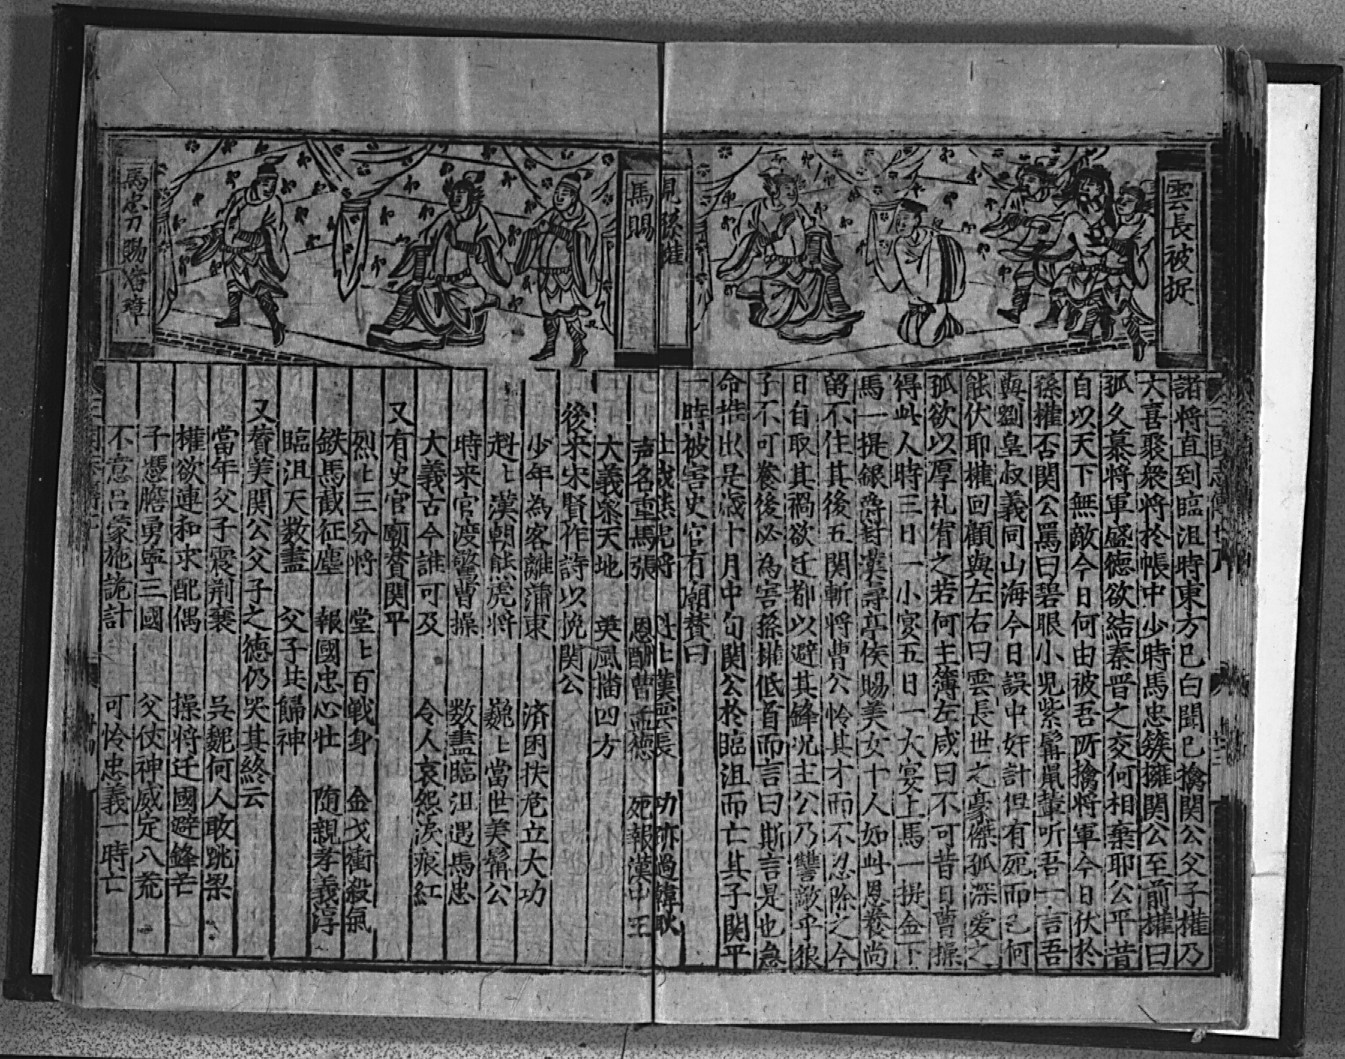 雲長被捉
見孫權
諸將直到臨沮時東方已白聞已擒関公父子權乃
大喜聚衆將於帳中少時馬忠簇擁関公至前權曰
孤久慕將軍盛德欲結秦晋之交何相棄耶公平昔
自以天下無敵今日何由被吾所擒將軍今日伏於
孫權否関公罵曰碧眼小児紫髯鼠輩听吾一言吾
與劉皇叔義同山海今日誤中奸計但有死而已何
能伏耶權回顧與左右曰雲長世之豪傑孤深愛之
孤欲以厚礼宥之若何主簿左咸曰不可昔日曹操
得此人時三日一小宴五日一大宴上馬一提金下
馬一提銀爵封漢壽亭侯賜美女十人如此恩養尚
留不住其後五関斬將曹公怜其才而不忍除之今
日自取其禍欲迁都以避其鋒况主公乃讐敵乎狼
子不可養後必為害孫權低首而言曰斯言是也急
命推出是歲十月中旬関公於臨沮而亡其子関平
一時被害史官有廟賛曰
漢雲長 功亦過韓耿
声名重馬張 恩酬曹孟德 死報漢中王
大義參天地 英風播四方
後宋宋賢作詩以挽関公
少年為客離蒲東 済困扶危立大功
赳〻漢朝能虎將 巍〻當世美髯公
時来官渡驚曹操 数盡臨沮遇馬忠
大義古今誰可及 令人哀怨淚痕紅
又有史官廟賛関平
烈〻三分將 堂〻百戰身 金戈衝殺氣
鉄馬截征塵 報國忠心壮 随親孝義淳
臨沮天数盡 父子共歸神
又賛美関公父子之德仍哭其終云
當年父子震荆襄 吳魏何人敢跳梁
權欲連和求配偶 操將迁國避鋒芒
子憑膽勇寧三國 父仗神威定八荒
不意呂蒙施詭計 可怜忠義一時亡
馬賜
馬忠刀賜潘璋